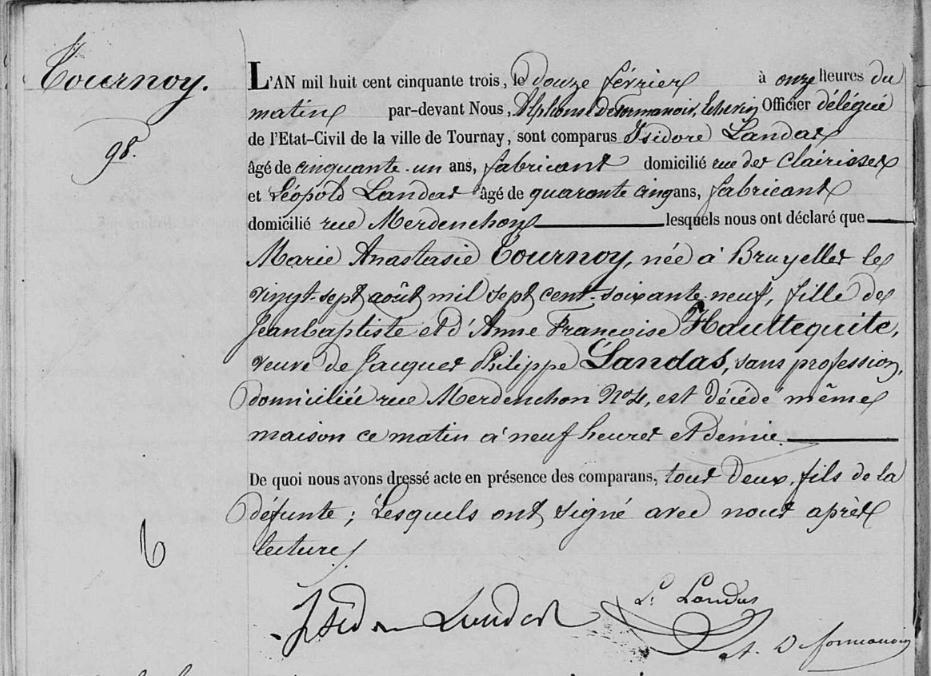 Tournoy.
98.
L'AN mil huit cent cinquante trois, le douze février à onze heures du
matin par-devant Nous, Alphonse Detormanoir, Echevin, Officier délégué
de l'Etat-Civil de la ville de Tournay, sont comparus Isidore Landas
âgé de cinquante-un ans, fabricant domicilié rue des Clairisses
et Léopold Landas âgé de quarante cinq ans, fabricant
domicilié rue Merdenchon lesquels nous ont déclaré que
Marie Anastasie Tournoy, née à Bruyelles le
vingt-sept août mil sept cent-soixante-neuf, fille de
Jean baptiste et d'Anne Françoise Hauttequite,
veuve de Jacques Philippe Landas, sans profession,
domiciliée rue Merdenchon No 4, est décédé même
maison ce matin à neuf heures et demie
De quoi nous avons dressé acte en présence des comparans, tous deux fils de la
défunte; Lesquels ont signé avec nous après
lecture
Isidore Landas
L. Landas